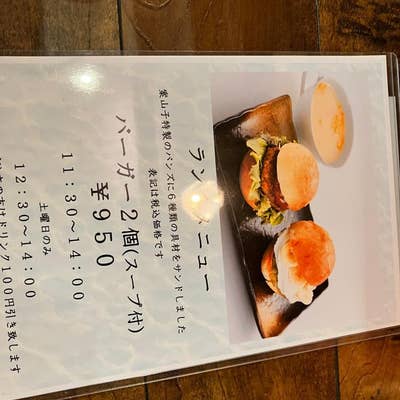 ランチメニュー
案山子特製のバンズに6種類の具材をサンドしました
表記は税込価格です
バーガー2個(スープ付)
¥950
11:30~14:00
土曜日のみ
12:30~14:00
の方はドリンク100円引き致します